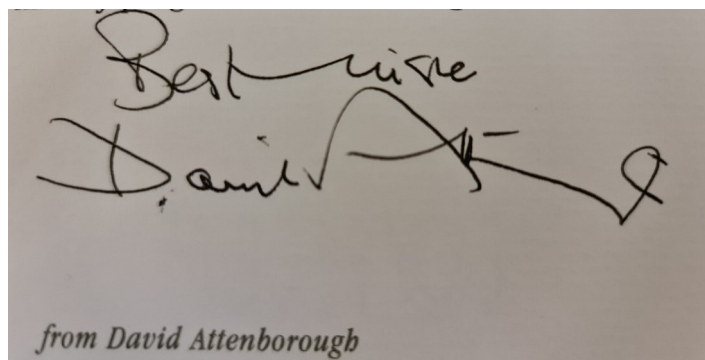 Best wishes
David Attenborough
from David Attenborough